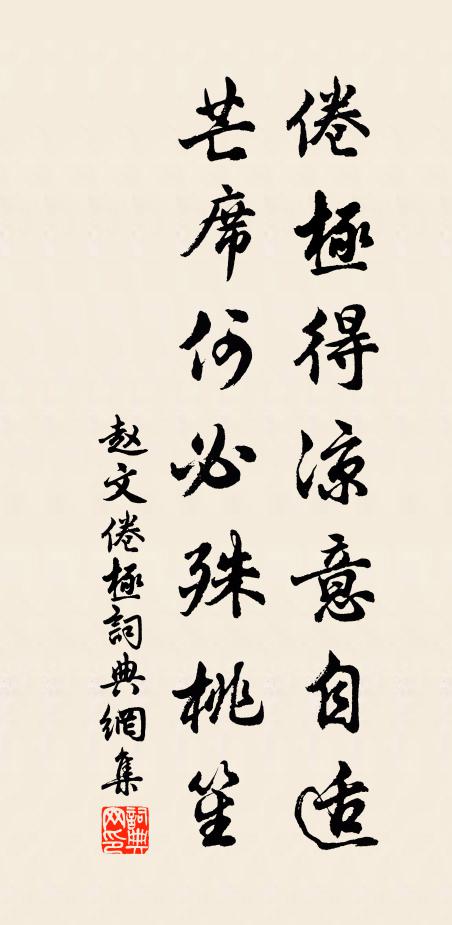 倦極得涼意自适
芒席何必殊桃笙
赵文倦極詞典網集
詞典網印